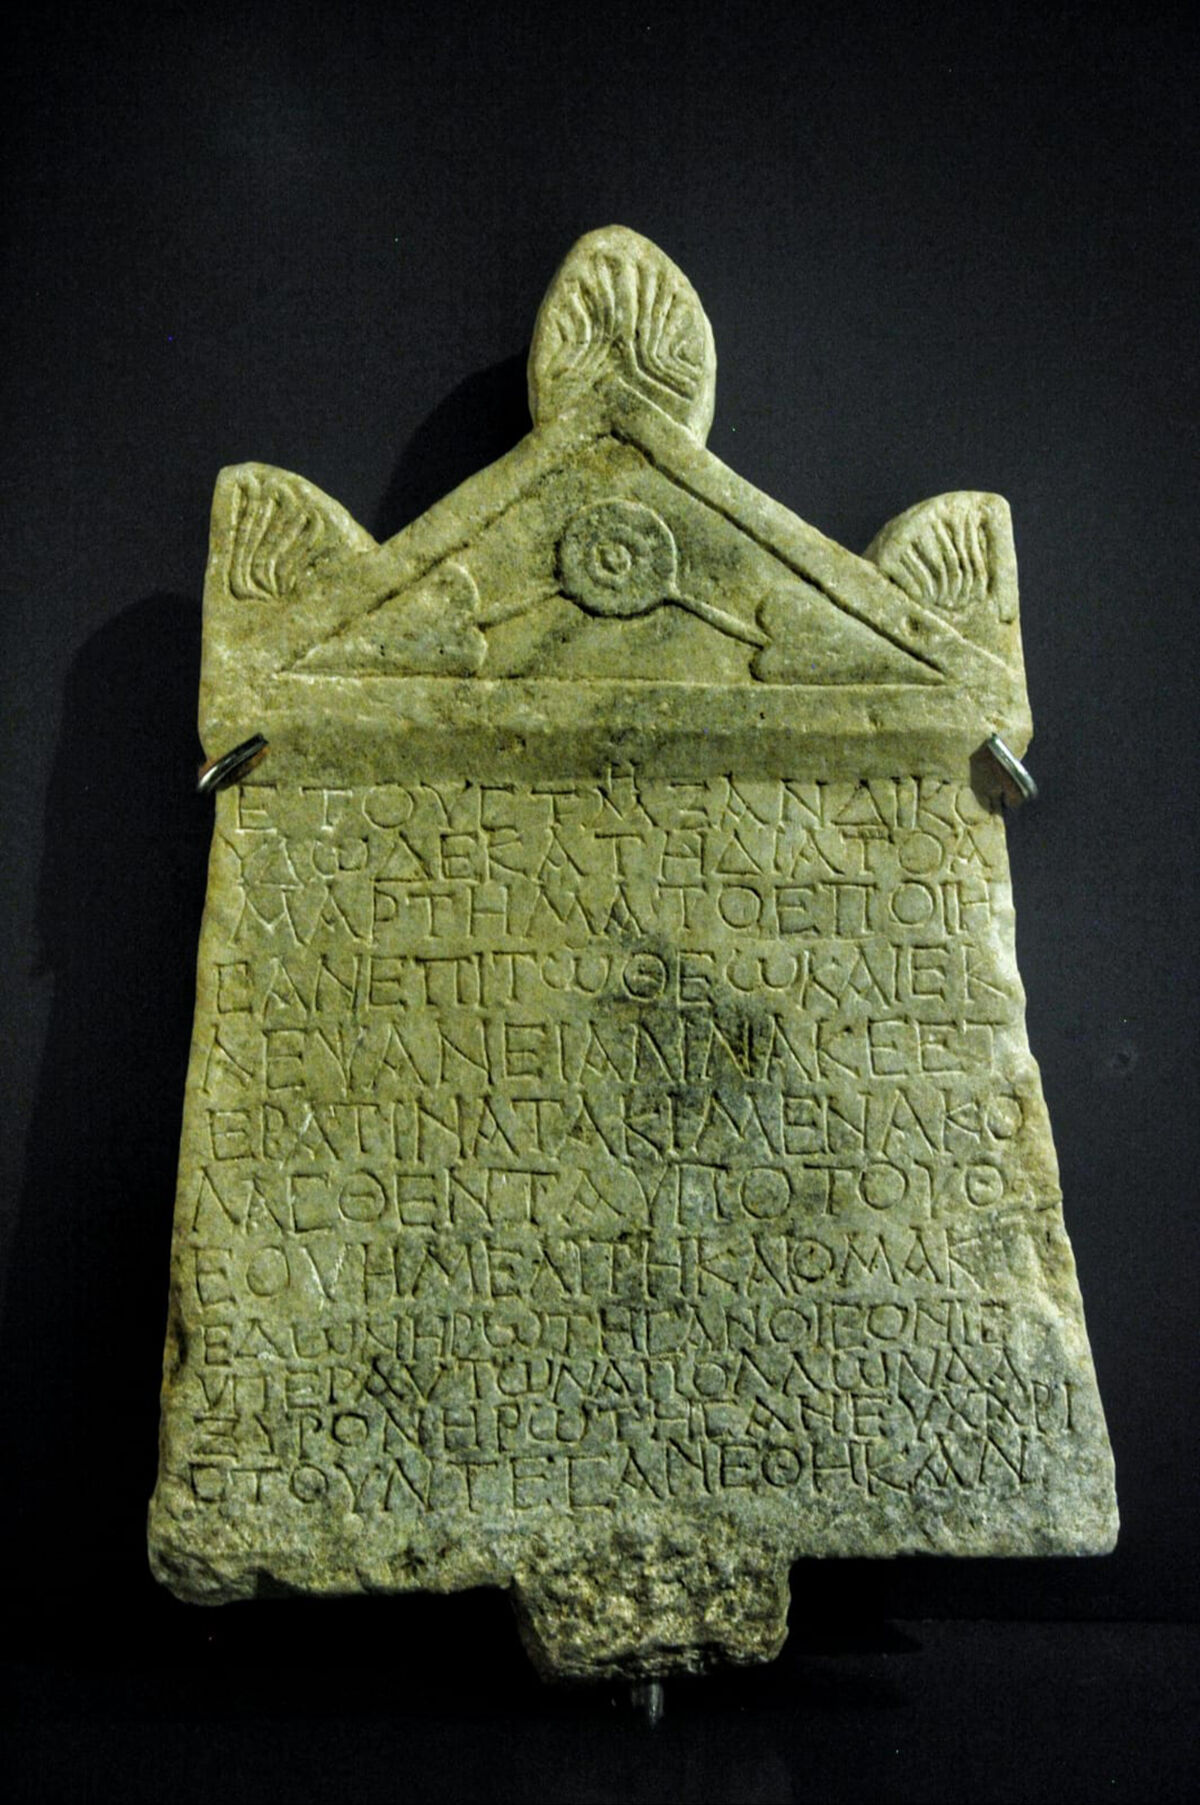 ΕΤΟΥϹΤΜΗΞΑΝΔΙΚΟ
ΥΔΩΔΕΚΑΤΗΔΙΑΤΟΑ
ΜΑΡΤΗΜΑΤΟΕΠΟΙΗ
ϹΑΝΕΠΙΤΩΘΕΩΚΑΙΕΚ
ΛΕΨΑΝΕΙΑΝΙΝΑΚΕΕΤ
ΕΡΑΤΙΝΑΤΑΚΙΜΕΝΑΚΟ
ΛΑϹΘΕΝΤΑΥΠΟΤΟΥΘ
ΕΟΥΗΜΕΛΙΤΗΚΑΙΟΜΑΚ
ΕΔΩΝΗΡΩΤΗϹΑΝΟΙΓΟΝΙϹ
ΥΠΕΡΑΥΤΩΝΑΠΟΛΛΩΝΑΑ
ΞΥΡΟΝΗΡΩΤΗϹΑΝΕΥΧΑΡΙ
ϹΤΟΥΝΤΕϹΑΝΕΘΗΚΑΝ